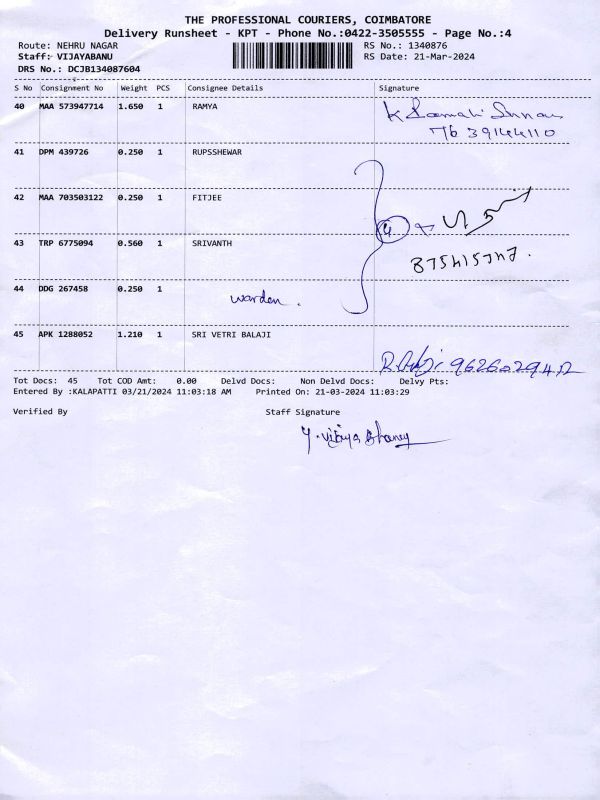 THE PROFESSIONAL COURIERS, COIMBATORE
Delivery Runsheet - KPT - Phone No.:0422-3505555 - Page No.:4
Route: NEHRU NAGAR RS No.: 1340876
Staff: VIJAYABANU RS Date: 21-Mar-2024
DRS No.: DCJB134087604
S No Consignment No Weight PCS Consignee Details Signature
40 MAA 573947714 1.650 1 RAMYA
41 DPM 439726 0.250 1 RUPSSHEWAR
42 MAA 703503122 0.250 1 FITJEE
4
43 TRP 6775094 0.560 1 SRIVANTH
44 DDG 267458 0.250 1
warden.
45 APK 1288052 1.210 1 SRI VETRI BALAJI
Tot Docs: 45 Tot COD Amt: 0.00 Delvd Docs: Non Delvd Docs: Delvy Pts:
Entered By :KALAPATTI 03/21/2024 11:03:18 AM Printed On: 21-03-2024 11:03:29
Verified By Staff Signature